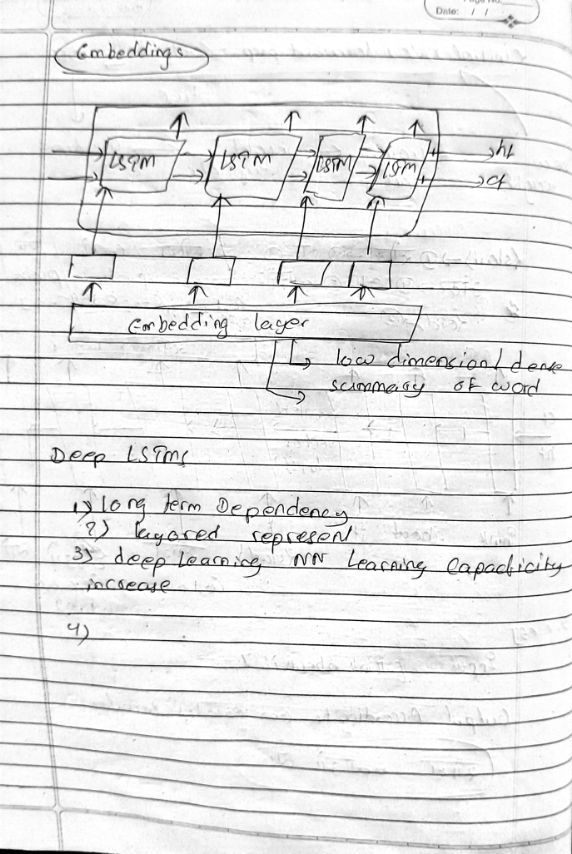 Date: / /
Embeddings
LSTM LSTM LSTM LSTM
ht
ct
Embedding layer
low dimension/dense
summary of word
Deep LSTMs
1) long term Dependency
2) layered represen
3) deep learning NN learning capacticity
increase
4)